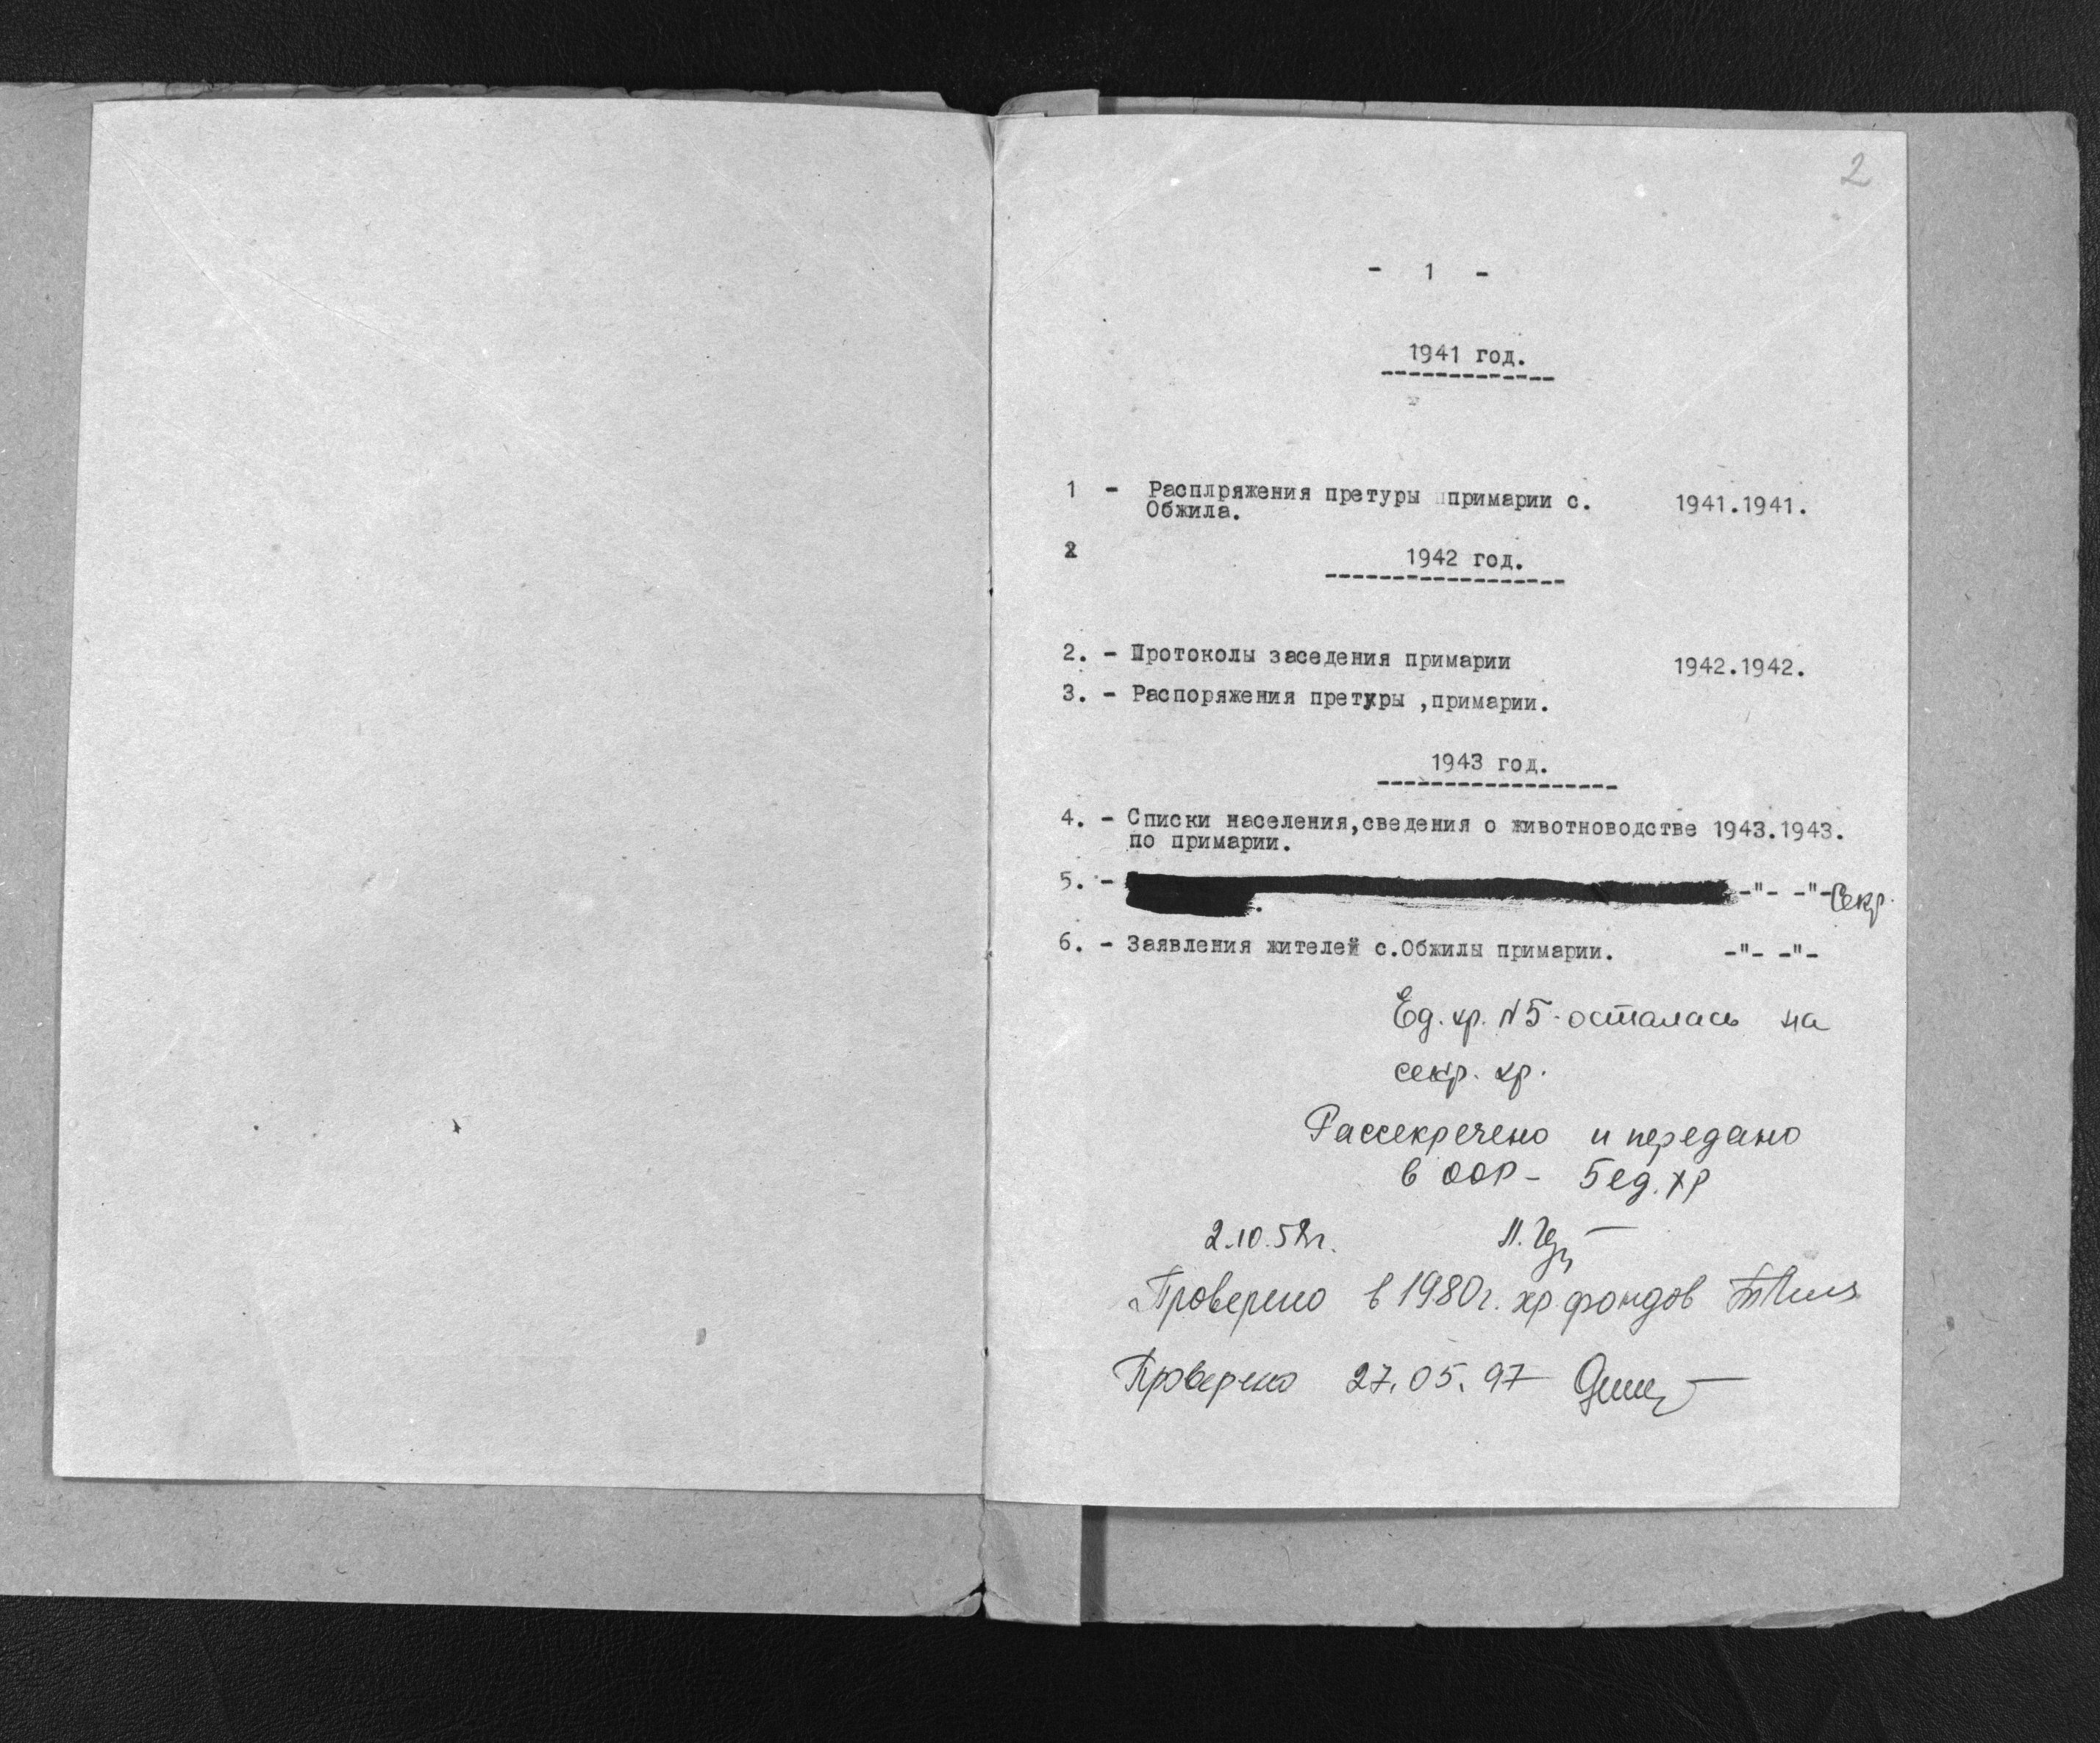 2
- 1 -
1941 год.
1 - Расплряжения претуры примарии с. 1941.1941.
Обжила.
2
1942 год.
2. - Протоколы заседения примарии 1942.1942.
3. - Распоряжения претуры ,примарии.
1943 год.
4. - Списки населения,сведения о животноводстве 1943.1943.
по примарии.
5. - -"- -"- Секр.
6. - Заявления жителей с.Обжилы примарии. -"- -"-
Ед. хр. N5 - осталась на
секр. хр.
Рассекречено и передано
в ООР - 5 ед. хр
2.10.58г.
Проверено в 1980г. хр. фондов
Проверено 27.05.97